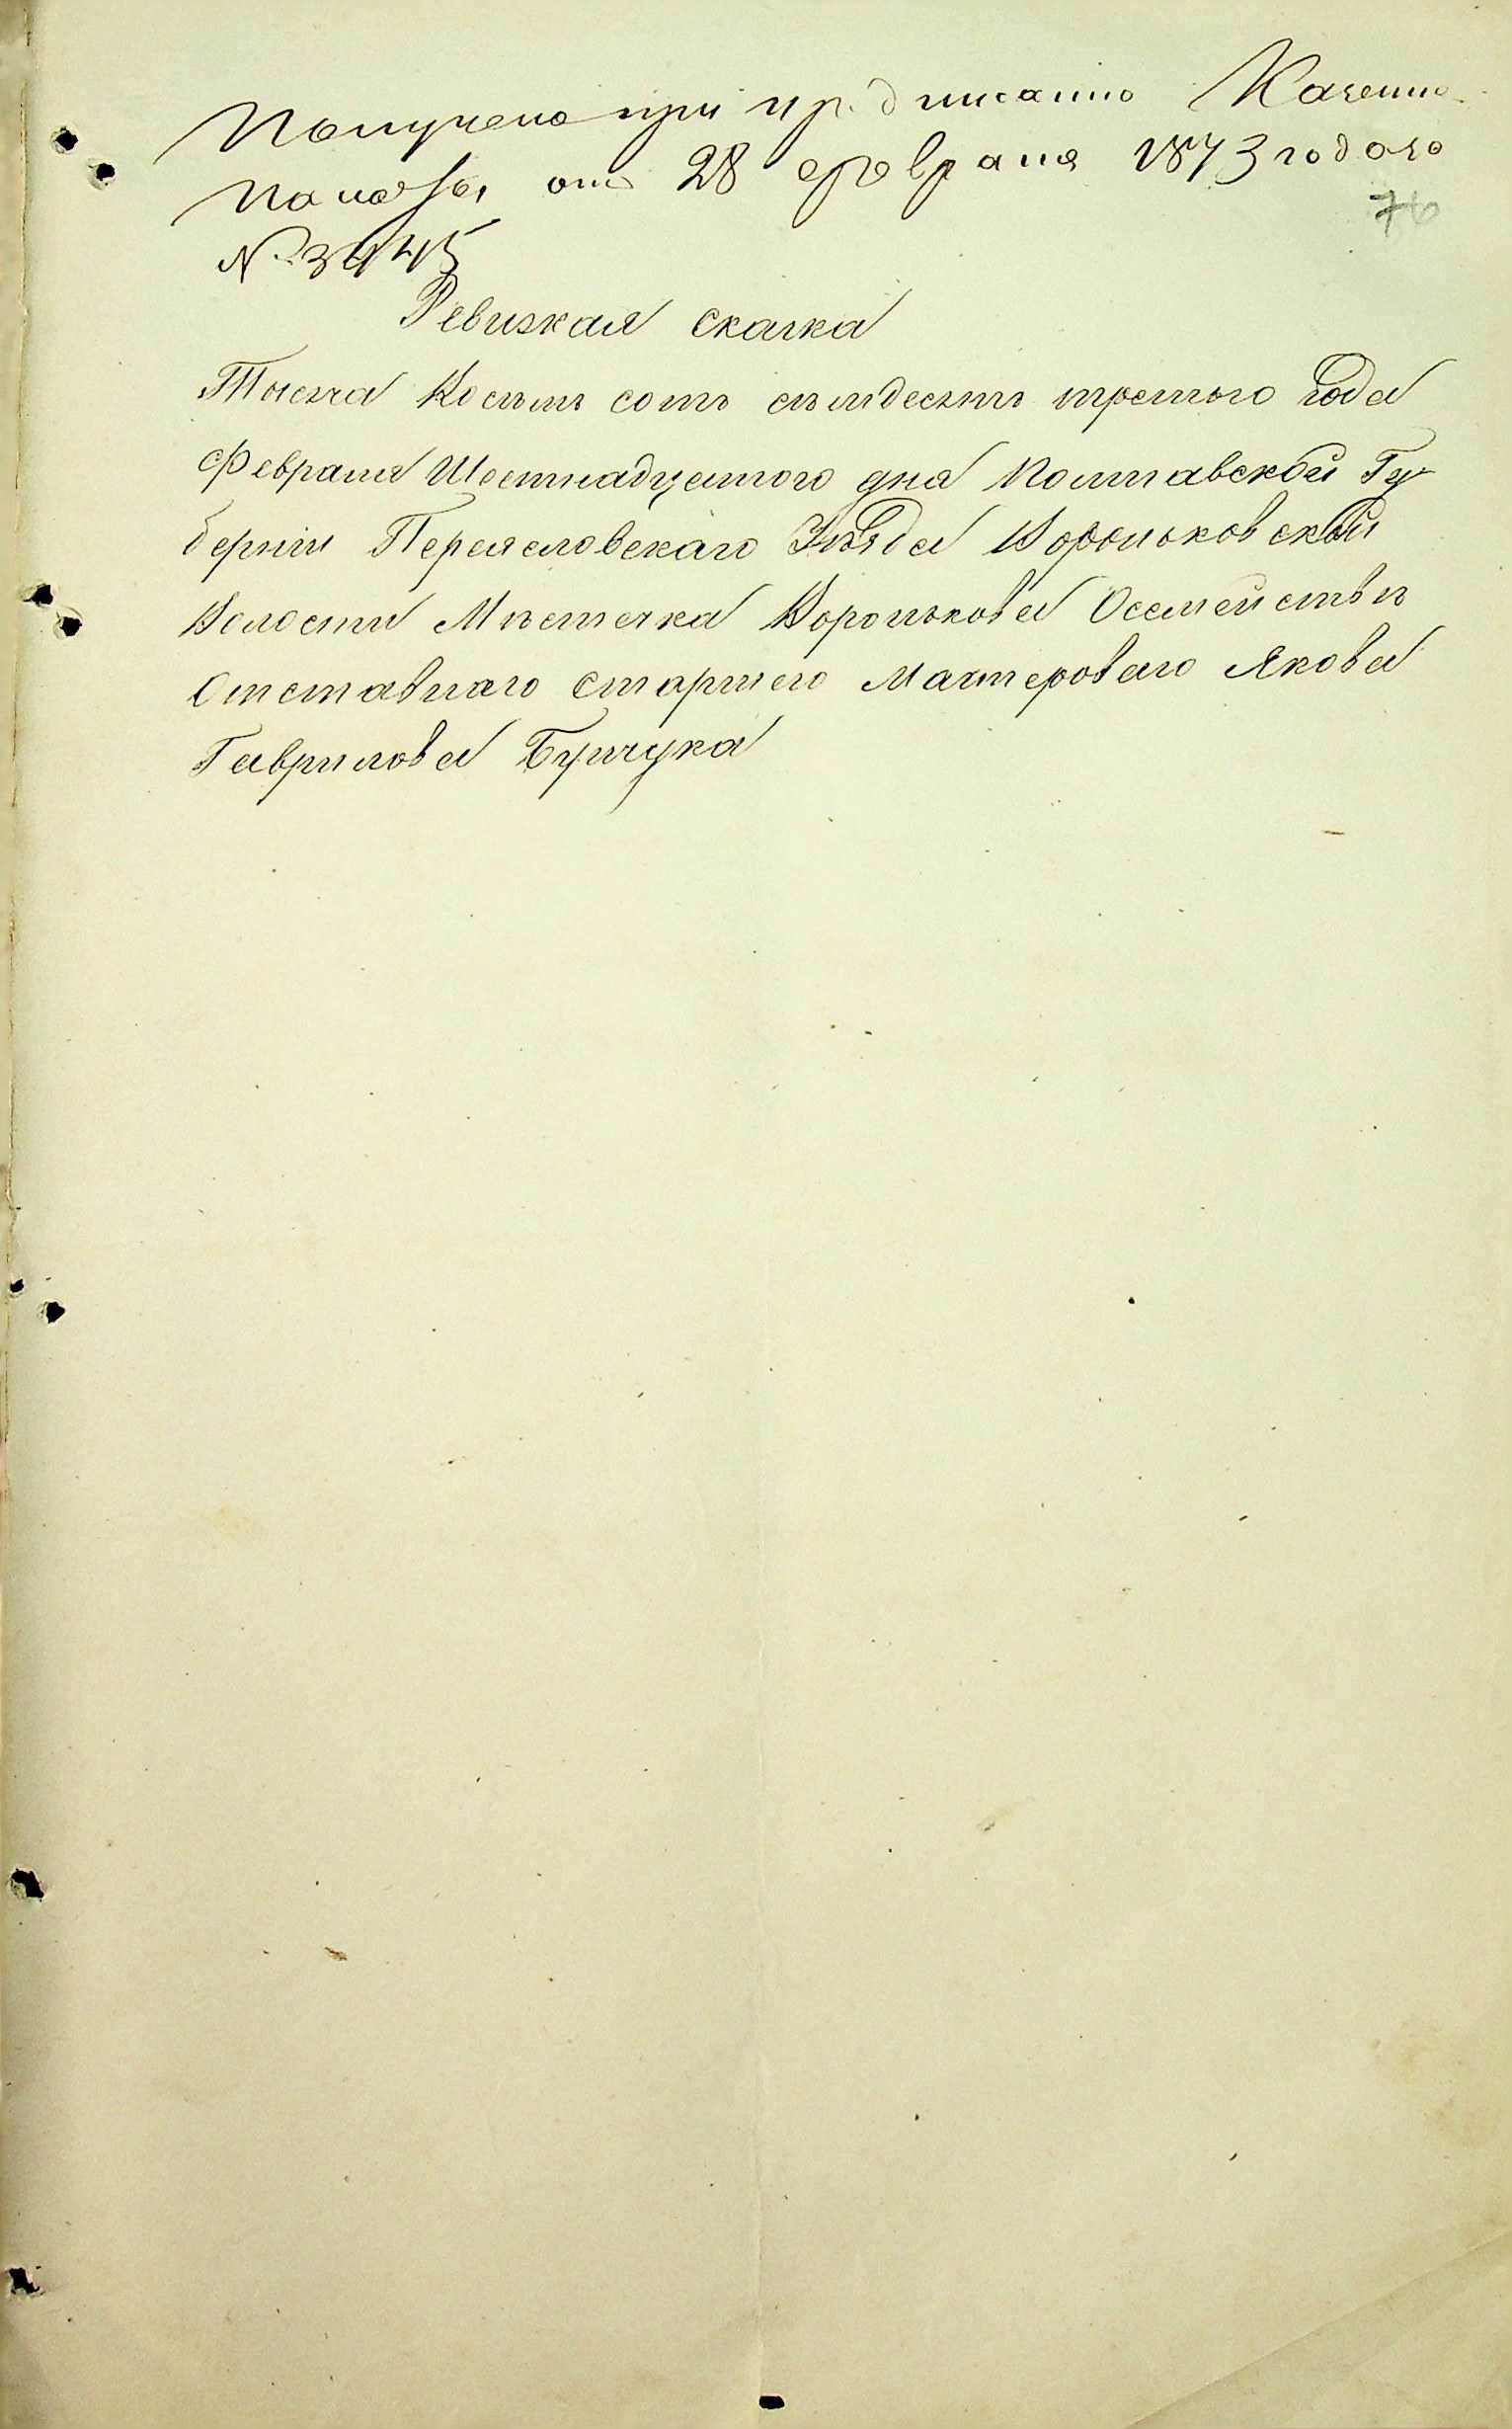 Получено при предписаніи Казенно
Палаты отъ 28 февраля 1873 года за
№ 3445
76
Ревизкая скаска
Тысяча Восѣмъ сотъ сѣмдесятъ третьго Года
Февраля Шестнадцатого дня Полтавской Гу
берніи Переясловскаго Уѣзда Вороньковской
Волости Мѣстечка Воронькова Осемействѣ
Отставнаго старшего Мастероваго Якова
Гаврилова Бунчука